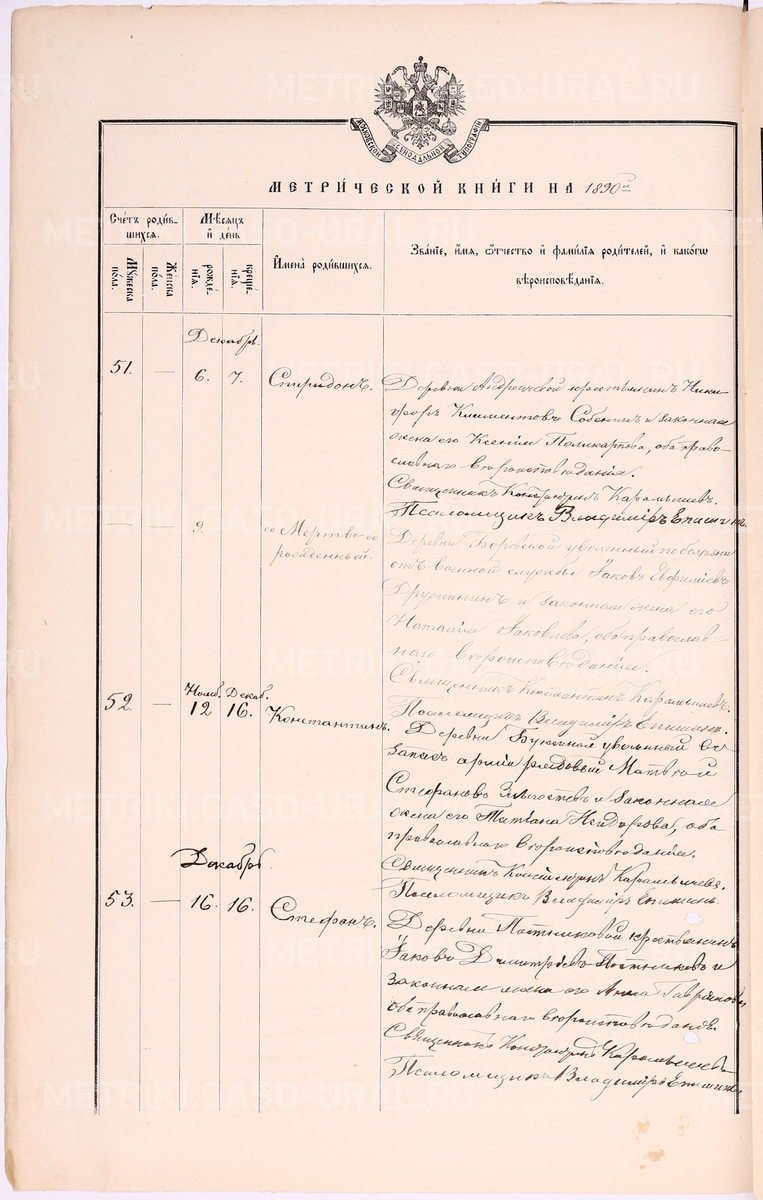 МОСКОВСКОЙ СѴНОДАЛЬНОЙ ТИПОГРАФІИ
МЕТРИ́ЧЕСКОЙ КНИ́ГИ НА 1890 й
Сче́тъ роди́в-
шихся.
Мѣ́сяцъ
и҆ де́нь
И҆мена̀ роди́вшихся.
Зва́нїе, и҆́мя, ѻ҆́тчество и҆ фами́лїя роди́телей, и҆ како́гѡ
вѣроисповѣ́данїя.
Мꙋ́жеска
по́ла.
Же́нска
по́ла.
рожде́-
нїя.
креще́-
нїя.
Декабрь.
51. — 6. 7. Спиридонъ.
Деревни Андреичевой крестьянинъ Ники-
форъ Климентовъ Собенинъ и законная
жена его Ксенія Поликарпова, оба право-
славнаго вѣроисповѣданія.
Священникъ Константинъ Карамышевъ.
Псаломщикъ Владиміръ Епишинъ.
— — 9. Мертво-
рожденный.
Деревни Боровской уволенный по болѣзни
отъ военной службы Іаковъ Евфиміевъ
Дружининъ и законная жена его
Наталія Іаковлева, оба православ-
наго вѣроисповѣданія.
Священникъ Константинъ Карамышевъ.
Псаломщикъ Владиміръ Епишинъ.
Нояб. Декаб.
52. — 12 16. Константинъ.
Деревни Букиной уволенный въ
запасъ арміи рядовый Матвѣй
Стефановъ и законная
жена его Татіана Исидорова, оба
православнаго вѣроисповѣданія.
Священникъ Константинъ Карамышевъ.
Псаломщикъ Владиміръ Епишинъ.
Декабрь.
53. — 16. 16. Стефанъ.
Деревни Постниковой крестьянинъ
Іаковъ Димитріевъ Постниковъ и
законная жена его Анна Гавріилова,
оба православнаго вѣроисповѣданія.
Священникъ Константинъ Карамышевъ
Псаломщикъ Владиміръ Епишинъ.
METRIKI.GASO-URAL.RU